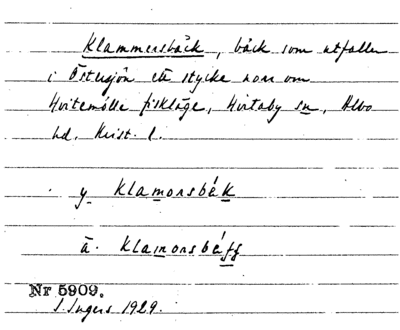 Klammersbäck, bäck som utfaller
i Östersjön ett stycke norr om
Hvitemölle fiskläge, Hvitaby sn, Albo
hd. Krist. l.
y Klamonsbäk
ä. Klamonsbä
Nr 5909.
I. Ingers 1929.